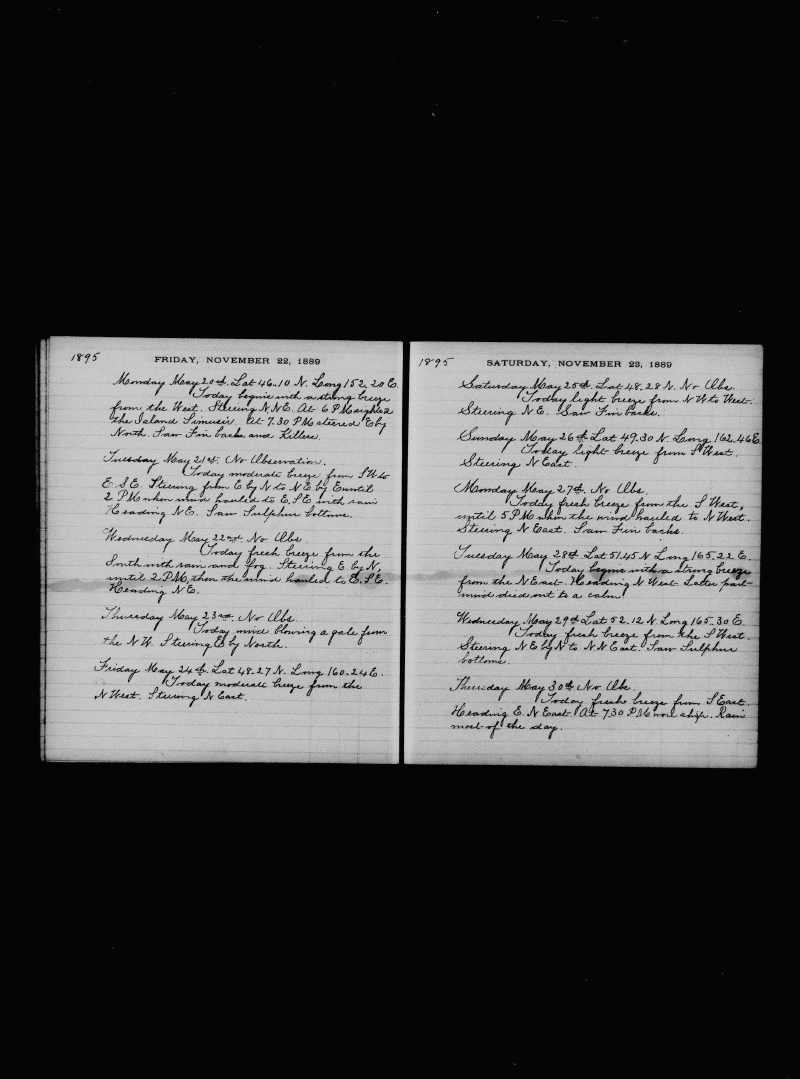 1895
FRIDAY, NOVEMBER 22, 1889
Monday May 20th. Lat 46..10 N. Long 152.20 E.
Today begins with a strong breeze
from the West. Steering N.N.E. At 6 PM sighted
the Island Simusir. At 7.30 PM steered E by
North. Saw Fin backs and Killers.
Tuesday May 21st. No Observation.
Today moderate breeze from SW to
E.S.E. Steering from E by N to N E by E until
2 PM when wind hauled to E.S.E with rain
Heading N E. Saw Sulphur bottoms.
Wednesday May 22nd. No Obs.
Today fresh breeze from the
South with rain and fog. Steering E by N,
until 2 PM, then the wind hauled to E.S.E.
Heading N E.
Thursday May 23rd. No Obs.
Today wind blowing a gale from
the N W. Steering E by North.
Friday May 24th. Lat 48.27 N. Long 160.24 E.
Today moderate breeze from the
N West. Steering N East.
1895
SATURDAY, NOVEMBER 23, 1889
Saturday May 25th. Lat 48.28 N. No Obs.
Today light breeze from N W to West.
Steering N E. Saw Fin backs.
Sunday May 26th Lat 49.30 N. Long 162.46 E.
Today light breeze from S West.
Steering N East.
Monday May 27th. No Obs.
Today fresh breeze from the S West,
until 5 PM when the wind hauled to N West.
Steering N East. Saw Fin backs.
Tuesday May 28th Lat 51.45 N Long 165.22 E.
Today begins with a strong breeze
from the N East. Heading N West. Latter part
wind died out to a calm.
Wednesday May 29th Lat 52.12 N. Long 165.30 E.
Today fresh breeze from the S West.
Steering N E by N to N N East. Saw Sulphur
bottoms.
Thursday May 30th No Obs
Today fresh breeze from S East.
Heading E. N East. At 7.30 PM a ship. Rain
most of the day.